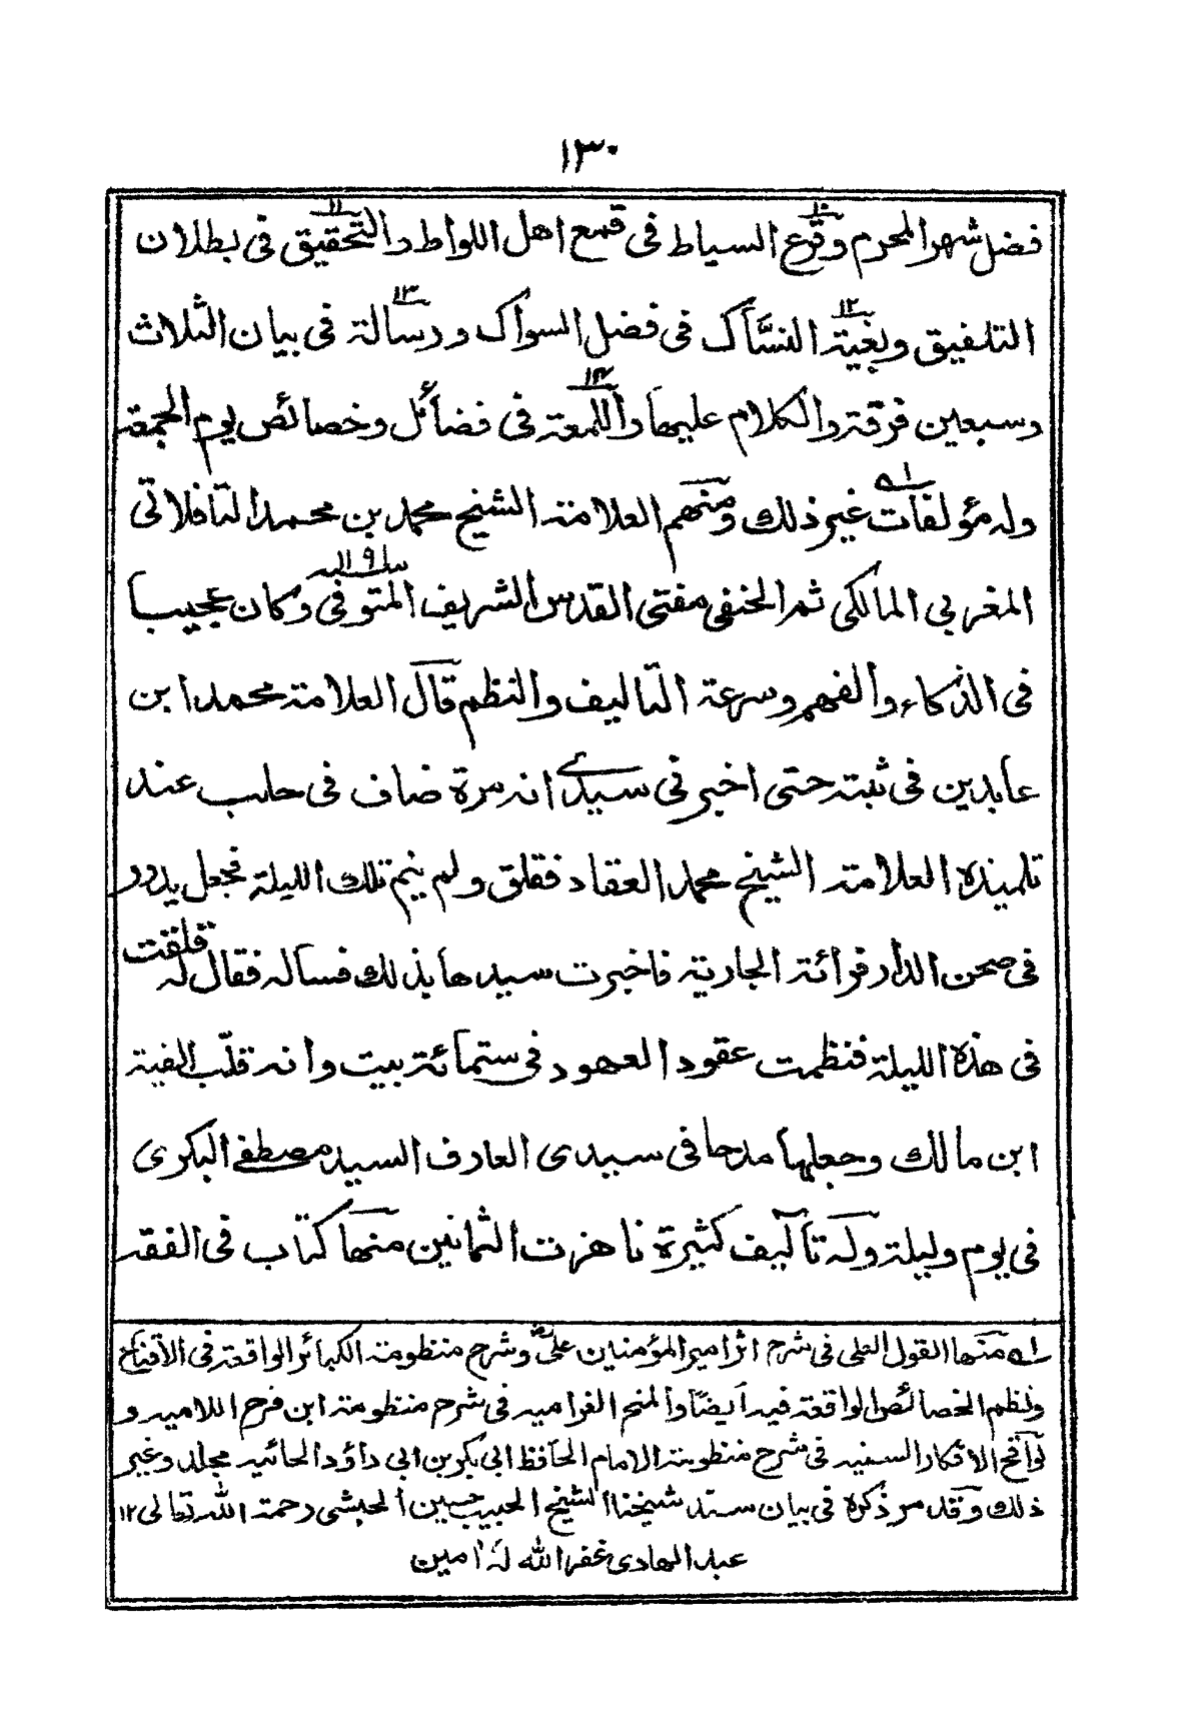 ١٣٠
فضل شهر المحرم وقرع السياط فى قمع اهل اللواط والتحقيق فى بطلان
التلفيق وبغية النسّاك فى فضل السواك ورسالة فى بيان الثلاث
وسبعين فرقة والكلام عليها واللمعة فى فضائل وخصائص يوم الجمعة
وله مؤلفات غير ذلك ومنهم العلامة الشيخ محمد بن محمد التافلاتى
المغربى المالكى ثم الحنفى مفتى القدس الشريف المتوفى وكان عجيبا
فى الذكاء والفهم وسرعة التاليف والنظم قال العلامة محمد ابن
عابدين فى ثبته حتى اخبر فى سيدى انه مرة ضاف فى حلب عند
تلميذه العلامة الشيخ محمد العقاد فقلق ولم ينم تلك الليلة فجعل يدور
فى صحن الدار فرائة الجارية فاخبرت سيدها بذلك فساله فقال له قلقت
فى هذه الليلة فنظمت عقود العهود فى ستمائة بيت وانه قلّب الفية
ابن مالك وجعلها مدحا فى سيدى العارف السيد مصطفى البكرى
فى يوم وليلة وله تآليف كثيرة ناهزت الثمانين منها كتاب فى الفقه
منها القول العلى فى شرح اثر امير المؤمنين على وشرح منظومة الكبائر الواقعة فى الاقناع
ونظم الخصائص الواقعة فيه ايضًا والمنح الغراميه فى شرح منظومة ابن فرح اللاميه و
لواقح الافكار السنيه فى شرح منظومة الامام الحافظ ابى بكر بن ابى داؤد الحائيه مجلد وغير
ذلك وقد مر ذكره فى بيان سند شيخنا الشيخ الحبيب حسين الحبشى رحمة الله تعالى ١٢
عبد الهادى غفر الله له امين